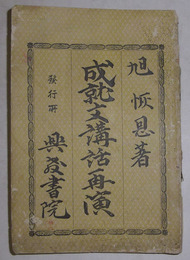 旭恢恩著
成就文講話再演
發行所 興教書院